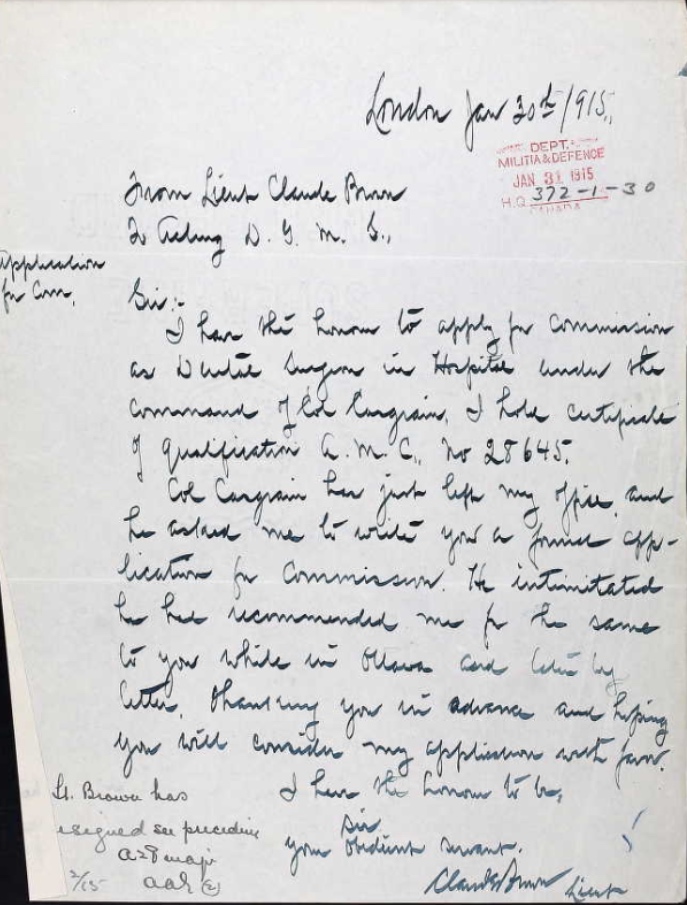 London Jan 30th/1915.,
DEPT.
MILITIA & DEFENCE
JAN 31 1915
H.Q. 372-1-30
CANADA
From Lieut Claude Brown
To Acting D. G. M. S.,
Application
for Com,
Sir:-
I have the honour to apply for Commission
as Dental Surgeon in Hospital under the
Command of Col Casgrain. I hold certificate
of qualification A. M. C., No 28645.
Col Casgrain has just left my office, and
he asked me to write you a formal app-
lication for Commission. He intimitated
he had recommended me for the same
to you while in Ottawa and later by
letter. Thanking you in advance and hoping
you will consider my application with favor.
I have the honour to be,
Sir,
your obedient servant.
Claude Brown Lieut
Lt. Brown has
resigned see preceding
major
2/15